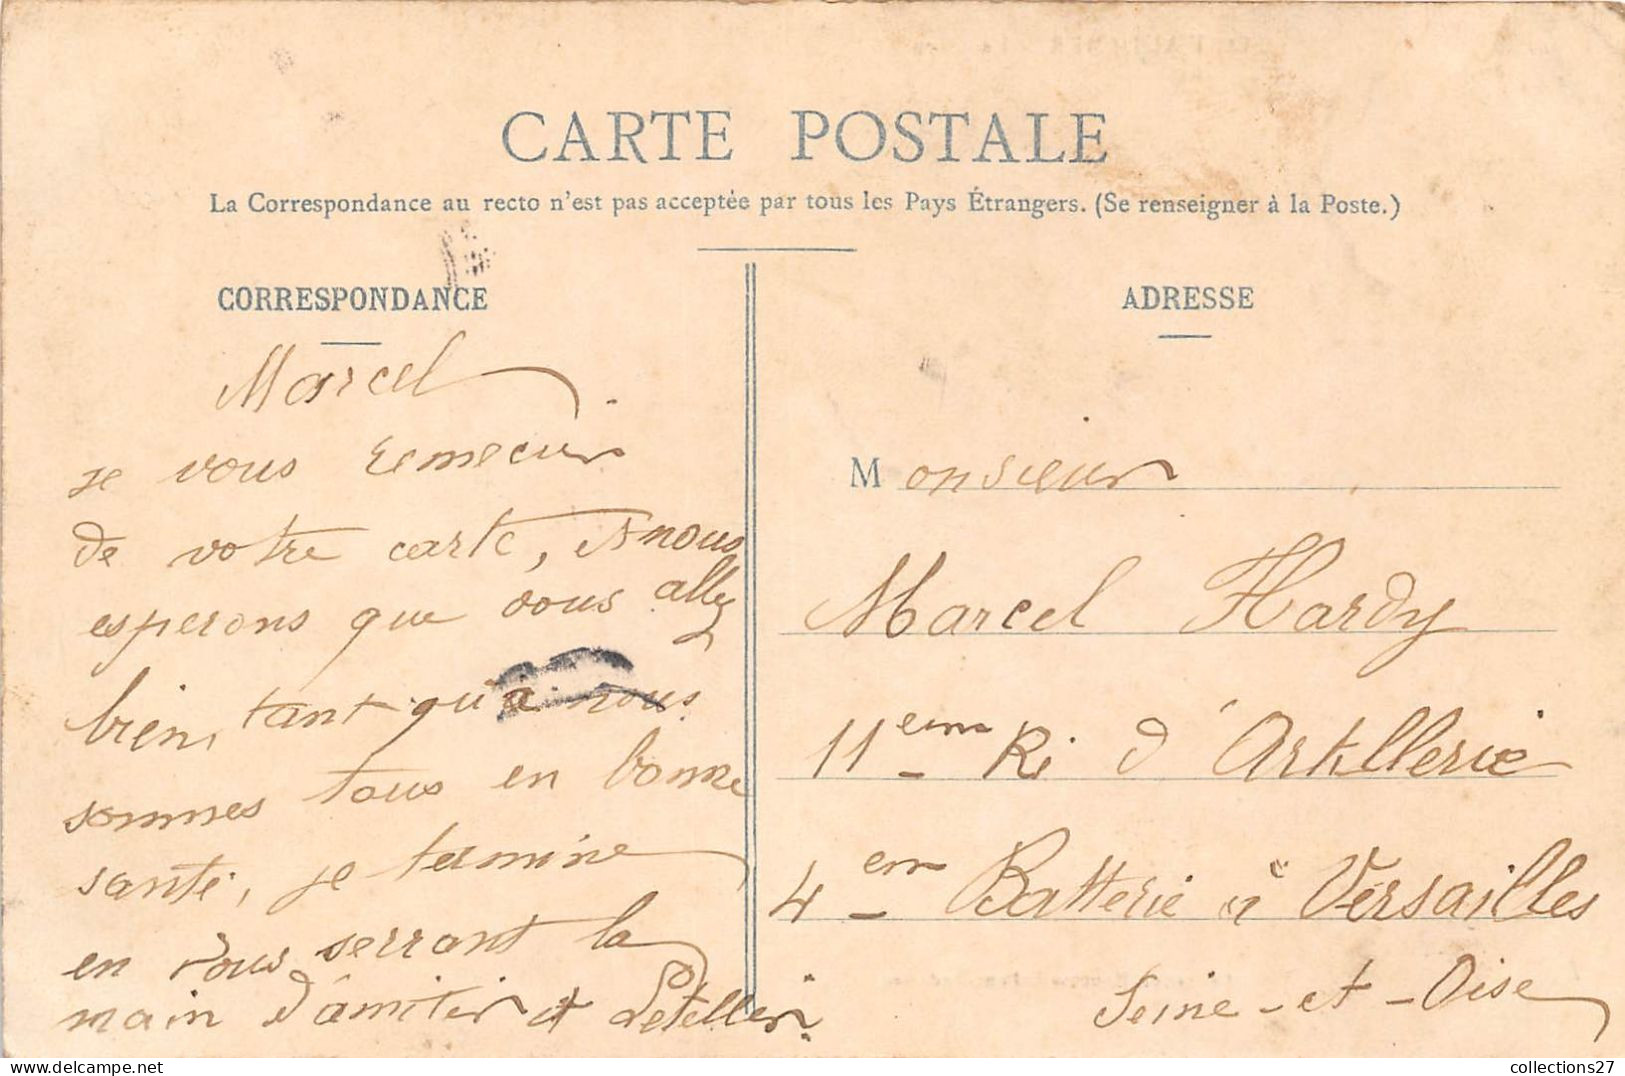 CARTE POSTALE
La Correspondance au recto n'est pas acceptée par tous les Pays Étrangers. (Se renseigner à la Poste.)
CORRESPONDANCE
Marcel
je vous remecie
de votre carte, et nous
esperons que vous allez
bien, tant qu'a nous
sommes tous en bonne
santé, je termine
en vous serrant la
main d'amitier Letellier
ADRESSE
Monsieur
Marcel Hardy
11eme Ri d'Artillerie
4em Batterie à Versailles
Seine-et-Oise
collections27